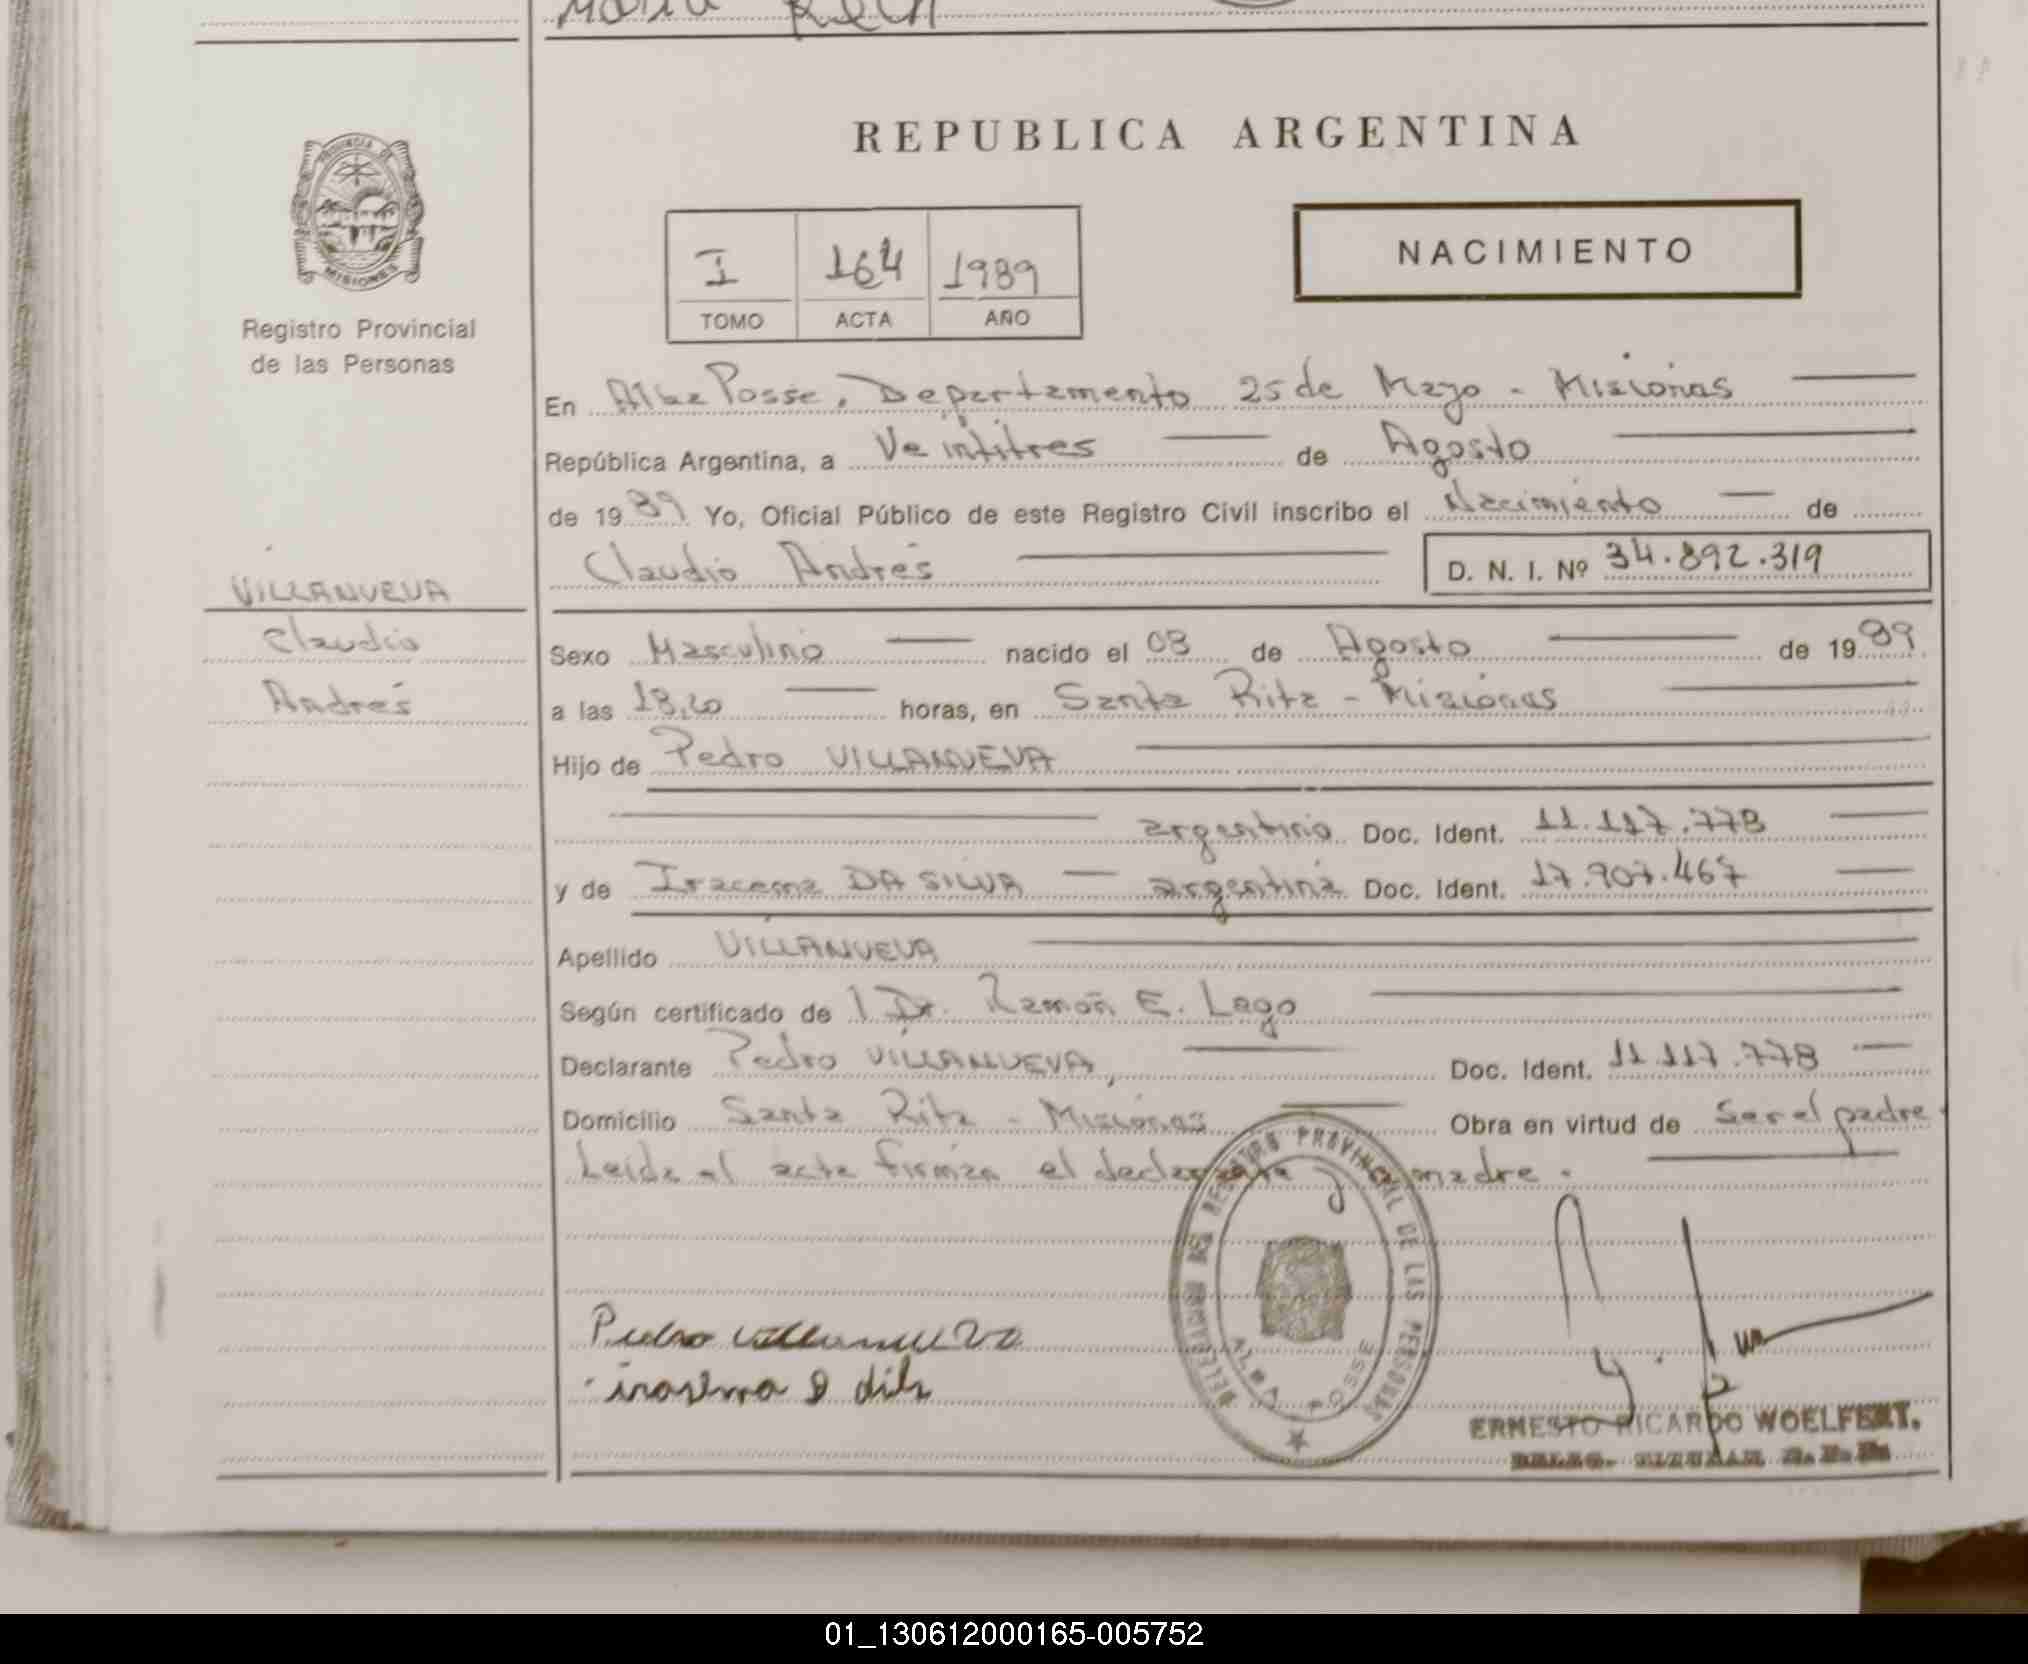 María
REPUBLICA ARGENTINA
PROVINCIA DE
MISIONES
Registro Provincial
de las Personas
I 164 1989
TOMO ACTA AÑO
NACIMIENTO
En Alba Posse, Departamento 25 de Mayo - Misiones
República Argentina, a Veintitres de Agosto
de 1989 Yo, Oficial Público de este Registro Civil inscribo el Nacimiento de
Claudio Andrés D. N. I. Nº 34.892.319
VILLANUEVA
Claudio
Andrés
Sexo Masculino nacido el 08 de Agosto de 1989
a las 18,20 horas, en Santa Rita - Misiones
Hijo de Pedro VILLANUEVA
argentino Doc. Ident. 11.117.778
y de Iracema DA SILVA argentina Doc. Ident. 17.907.467
Apellido VILLANUEVA
Según certificado de l Dr. Ramón E. Lago
Declarante Pedro VILLANUEVA, Doc. Ident. 11.117.778
Domicilio Santa Rita - Misiones Obra en virtud de ser el padre.
Leída el acta firman el declarante y madre.
DELEGACION DEL REGISTRO PROVINCIAL DE LAS PERSONAS
ALBA POSSE
Pedro Villanueva
ERNESTO RICARDO WOELFERT.
DELEG. TITULAR
01_130612000165-005752